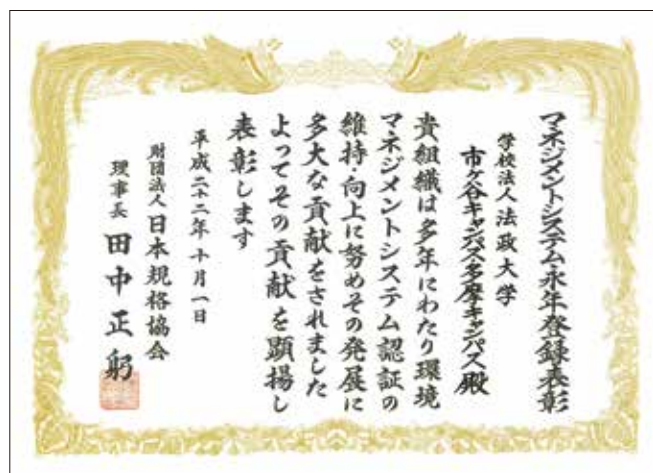 マネジメントシステム永年登録表彰
学校法人法政大学
市ケ谷キャンパス多摩キャンパス殿
貴組織は多年にわたり環境
マネジメントシステム認証の
維持・向上に努めその発展に
多大な貢献をされました
よってその貢献を顕揚し
表彰します
平成二十二年十月一日
財団法人日本規格協会
理事長 田中正躬